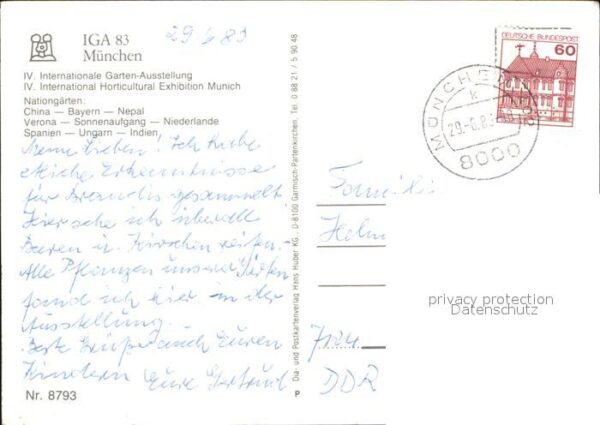 IGA 83
München
29 6 83
IV. Internationale Garten-Ausstellung
IV. International Horticultural Exhibition Munich
Nationgärten:
China — Bayern — Nepal
Verona — Sonnenaufgang — Niederlande
Spanien — Ungarn — Indien
Meine Lieben! Ich habe
etliche Erkenntnisse
für Brandis gesammelt.
Hier sehe ich überall
Beeren u. Kirschen reifen.
Alle Pflanzen unserer Gärten
fand ich hier in der
Ausstellung.
Beste Grüße auch Euren
Kindern Eure Gertrud
Nr. 8793
Dia- und Postkartenverlag Hans Huber KG., D-8100 Garmisch-Partenkirchen, Tel. 0 88 21 / 5 90 48
P
DEUTSCHE BUNDESPOST
60
MÜNCHEN
k
29.-6.83
8000
Familie
Helm
7124
DDR
privacy protection
Datenschutz